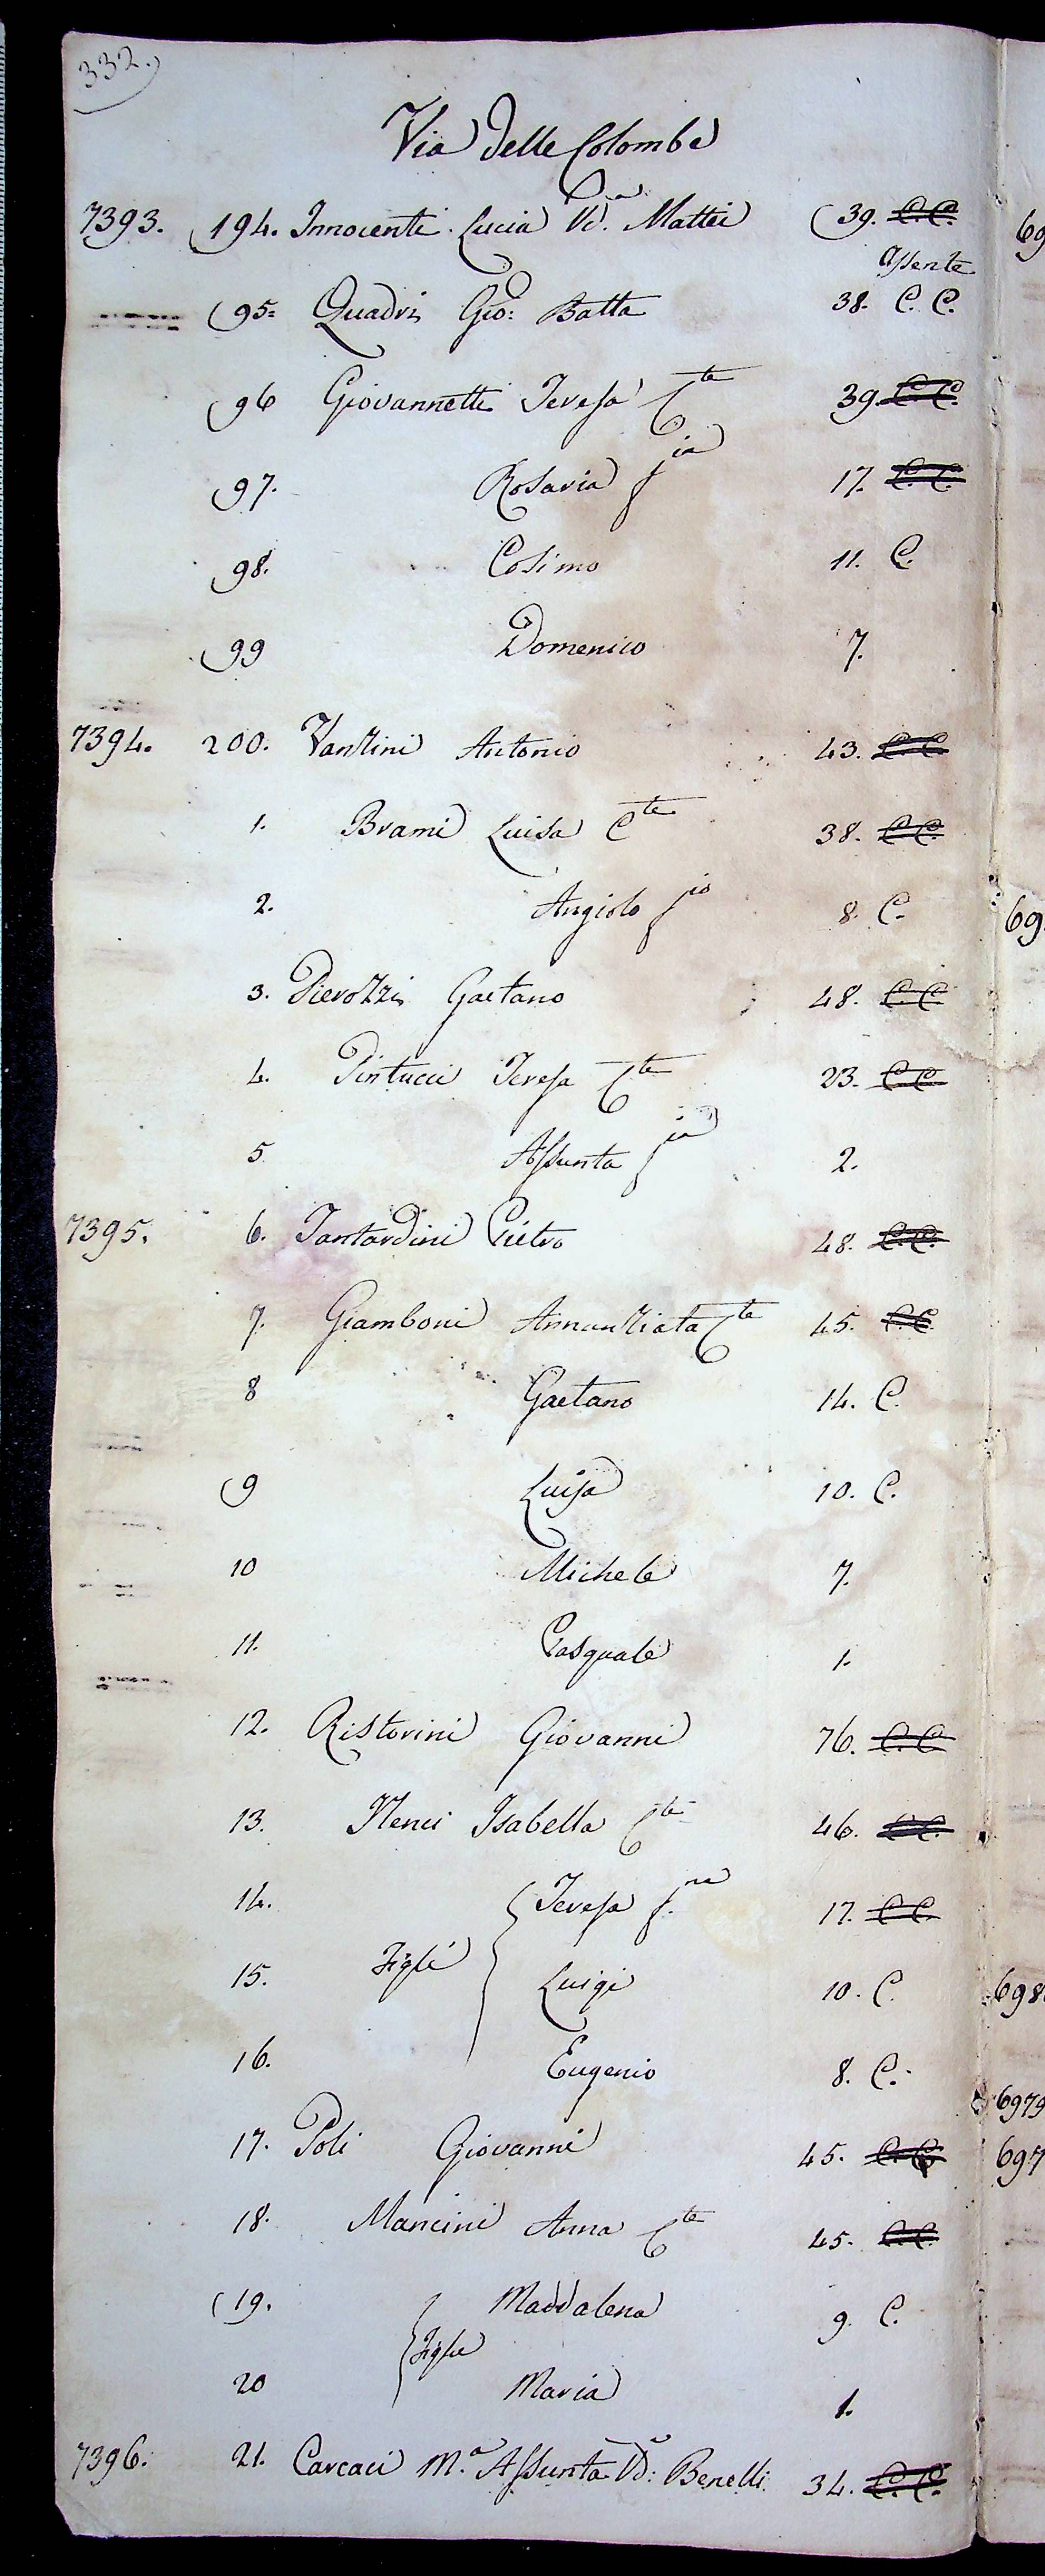 332.
Via delle Colombe
7393. 194. Innocenti Lucia Vd.a Mattei 39. C.C.
assente
95= Quadri Gio: Batta 38. C. C.
96 Giovannetti Teresa C.te 39. C.C.
97. Rosaria f.ia 17. C.C.
98. Cosimo 11. C.
99 Domenico 7.
7394. 200. Vanzini Antonio 43. C.C.
1. Brami Luisa C.te 38. C.C.
2. Angiolo f.io 8. C.
3. Pierozzi Gaetano 48. C.C.
4. Pintucci Teresa C.te 23. C.C.
5 Assunta f.ia 2.
7395. 6. Tantardini Pietro 48. C.C.
7. Giamboni Annunziata C.te 45. C.C.
8 Gaetano 14. C.
9 Luisa 10. C.
10 Michele 7.
11. Pasquale 1.
12. Ristorini Giovanni 76. C.C.
13. Nenci Isabella C.te 46. C.C.
14. Teresa f.na 17. C.C.
15. Figli Luigi 10. C.
16. Eugenio 8. C.
17. Poli Giovanni 45. C.C.
18. Mancini Anna C.te 45. C.C.
19. Maddalena 9. C.
Figlie
20 Maria 1.
7396. 21. Carcaci M.a Assunta Vd.a Benelli 34. C.C.
69
69
698
6979
697